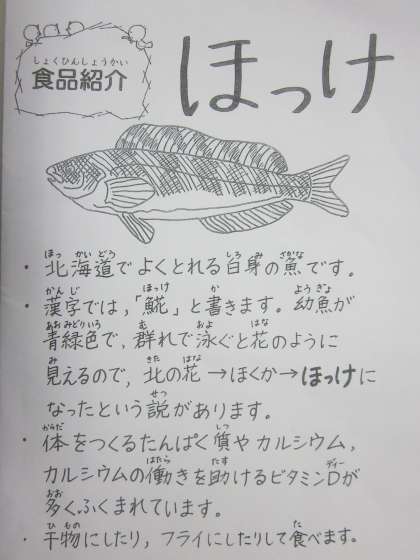 しょくひんしょうかい
食品紹介
ほっけ
・北海道でよくとれる白身の魚です。
・漢字では,「𩸽」と書きます。幼魚が
青緑色で,群れで泳ぐと花のように
見えるので,北の花→ほくか→ほっけに
なったという説があります。
・体をつくるたんぱく質やカルシウム,
カルシウムの働きを助けるビタミンDが
多くふくまれています。
・干物にしたり,フライにしたりして食べます。